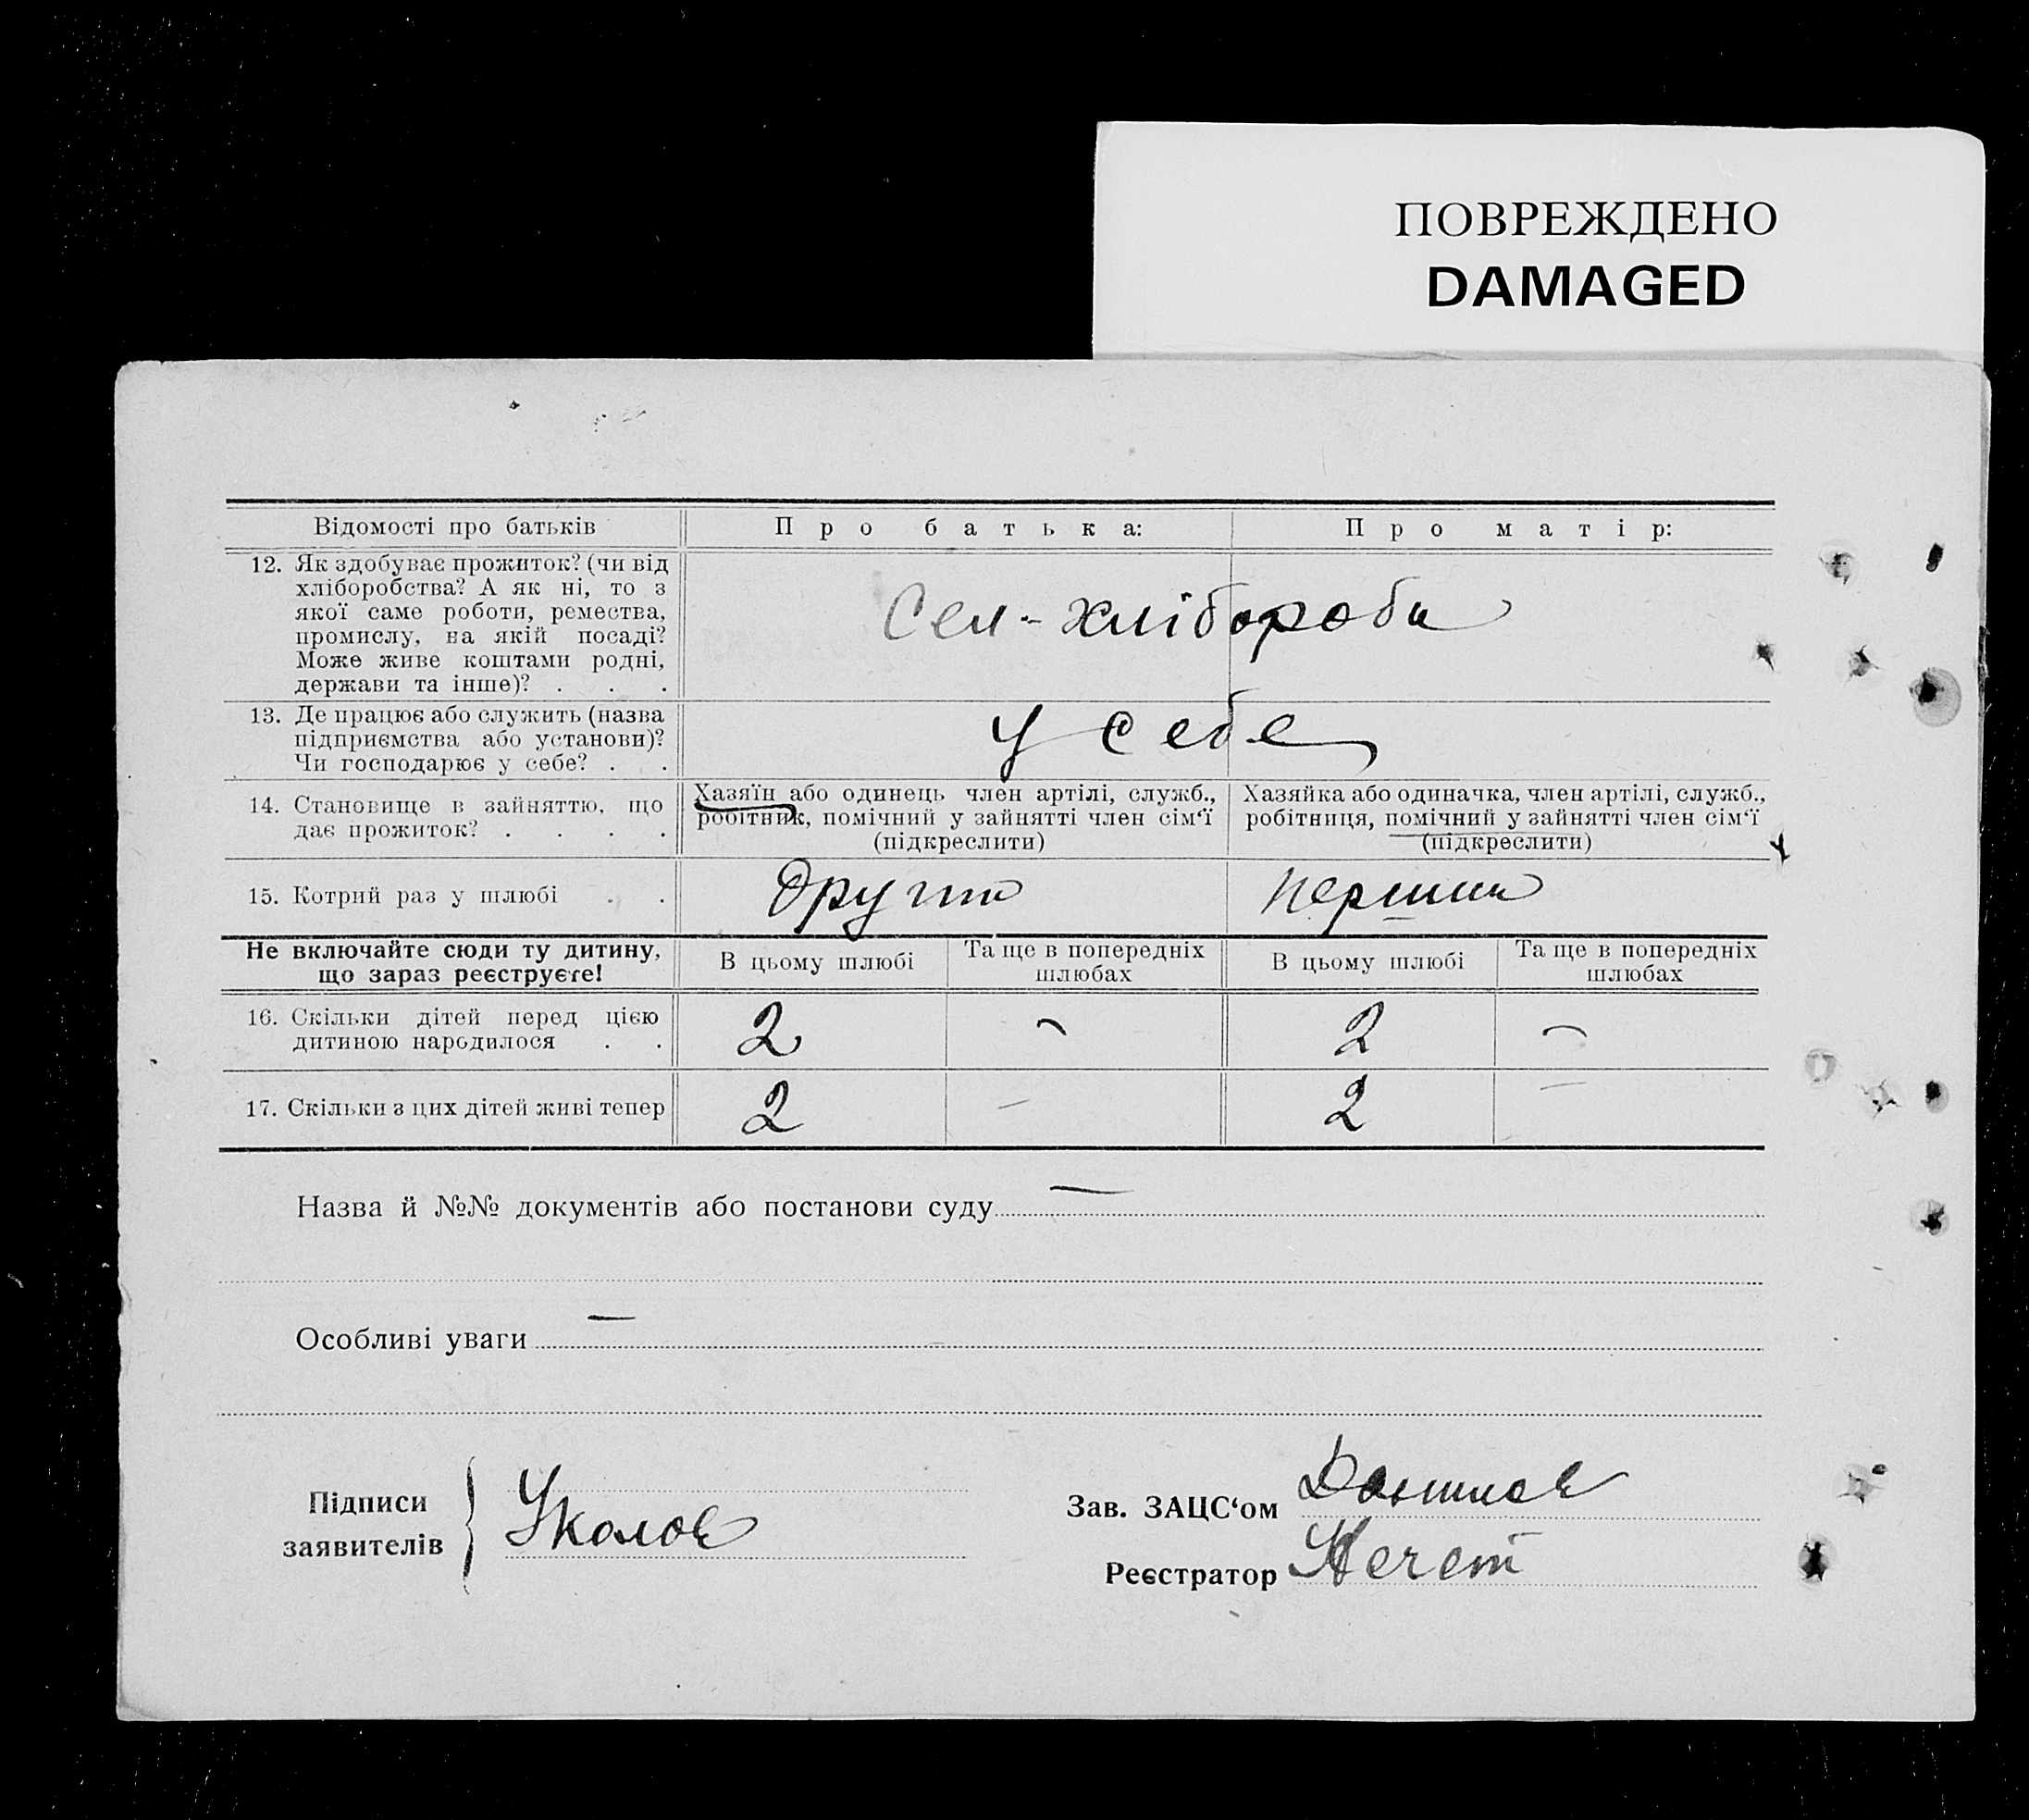 ПОВРЕЖДЕНО
DAMAGED
Відомості про батьків
Про батька:
Про матір:
12. Як здобуває прожиток? (чи від
хліборобства? А як ні, то з
якої саме роботи, ремества,
промислу, на якій посаді?
Може живе коштами родні,
держави та інше)? . . .
Сел-хлібороби
13. Де працює або служить (назва
підприємства або установи)?
Чи господарює у себе? . .
у себе
14. Становище в зайняттю, що
дає прожиток? . . . .
Хазяїн або одинець член артілі, служб.,
робітник, помічний у зайнятті член сім‘ї
(підкреслити)
Хазяйка або одиначка, член артілі, служб.,
робітниця, помічний у зайнятті член сім‘ї
(підкреслити)
15. Котрий раз у шлюбі . .
Не включайте сюди ту дитину,
що зараз реєструєте!
В цьому шлюбі
Та ще в попередніх
шлюбах
В цьому шлюбі
Та ще в попередніх
шлюбах
16. Скільки дітей перед цією
дитиною народилося . .
2 - 2 -
17. Скільки з цих дітей живі тепер
2 - 2 -
Назва й №№ документів або постанови суду —
Особливі уваги —
Підписи
заявителів
Уколов
Зав. ЗАЦС‘ом
Реєстратор